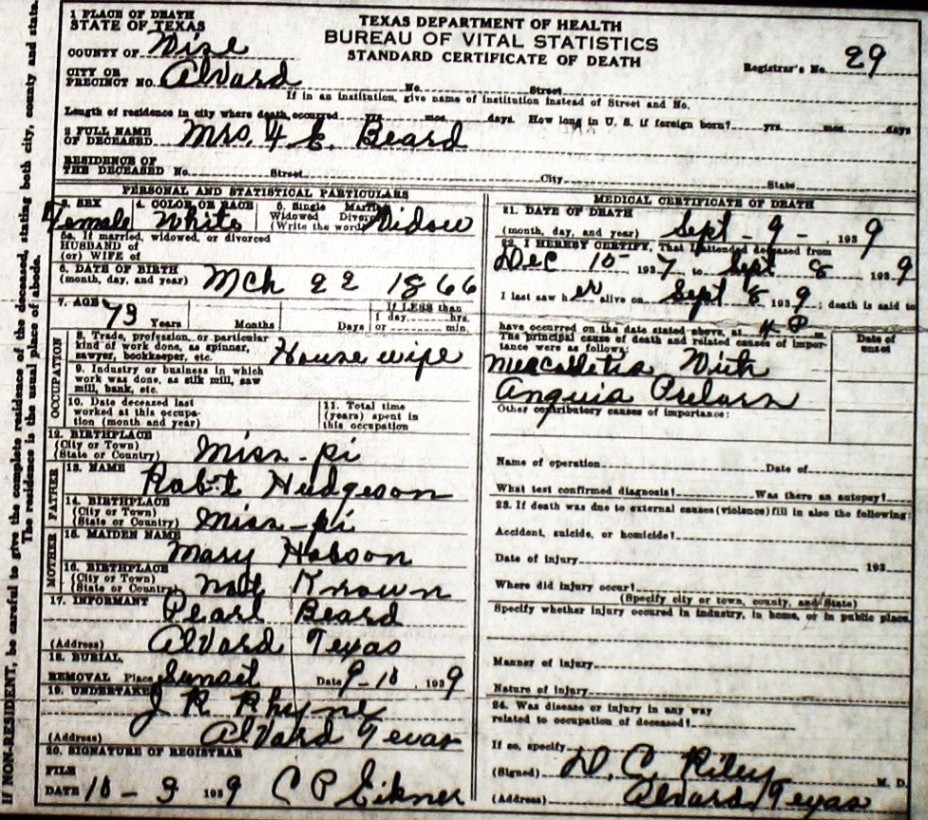 1 PLACE OF DEATH
STATE OF TEXAS
COUNTY OF Wise
CITY OR
PRECINCT NO. Alvard No. Street
If in an institution, give name of institution instead of Street and No.
TEXAS DEPARTMENT OF HEALTH
BUREAU OF VITAL STATISTICS
STANDARD CERTIFICATE OF DEATH
Registrar's No. 29
Length of residence in city where death occurred yrs. mos. days. How long in U. S. if foreign born? yrs. mos. days
2 FULL NAME
OF DECEASED Mrs. E. Beard
RESIDENCE OF
THE DECEASED No. Street City State
PERSONAL AND STATISTICAL PARTICULARS
3. SEX 4. COLOR OR RACE 5. Single Married
Widowed Divorced
(Write the word)
Female White Widow
5a. If married, widowed, or divorced
HUSBAND of
(or) WIFE of
6. DATE OF BIRTH
(month, day, and year) Mch 22 1866
7. AGE 73 Years Months Days
If LESS than
1 day hrs.
or min.
OCCUPATION
8. Trade, profession, or particular
kind of work done, as spinner,
sawyer, bookkeeper, etc. House wife
9. Industry or business in which
work was done, as silk mill, saw
mill, bank, etc.
10. Date deceased last
worked at this occupa-
tion (month and year)
11. Total time
(years) spent in
this occupation
12. BIRTHPLACE
(City or Town)
(State or Country) Miss-pi
FATHER
13. NAME Rob't Hudgeson
14. BIRTHPLACE
(City or Town)
(State or Country) Miss-pi
MOTHER
15. MAIDEN NAME Mary Hobson
16. BIRTHPLACE
(City or Town)
(State or Country) not Known
17. INFORMANT Pearl Beard
(Address) Alvard Texas
18. BURIAL,
REMOVAL Place Sunset Date 9-10, 1939
19. UNDERTAKER J R Rhyne
(Address) Alvard Texas
20. SIGNATURE OF REGISTRAR
FILE
DATE 10-3 1939 C P Eikner
MEDICAL CERTIFICATE OF DEATH
21. DATE OF DEATH
(month, day, and year) Sept-9- 1939
22. I HEREBY CERTIFY, That I attended deceased from
Dec 10 1937, to Sept 8 1939
I last saw her alive on Sept 8 1939; death is said to
have occurred on the date stated above, at P m
The principal cause of death and related causes of impor-
tance were as follows:
Date of
onset
With
Other contributory causes of importance:
Name of operation Date of
What test confirmed diagnosis? Was there an autopsy?
23. If death was due to external causes (violence) fill in also the following:
Accident, suicide, or homicide?
Date of injury 193
Where did injury occur?
(Specify city or town, county, and State)
Specify whether injury occured in industry, in home, or in public place.
Manner of injury
Nature of injury
24. Was disease or injury in any way
related to occupation of deceased?
If so, specify
(Signed) D. C. Riley M. D.
(Address) Alvard, Texas
If NON-RESIDENT, be careful to give the complete residence of the deceased, stating both city, county and state.
The residence is the usual place of abode.